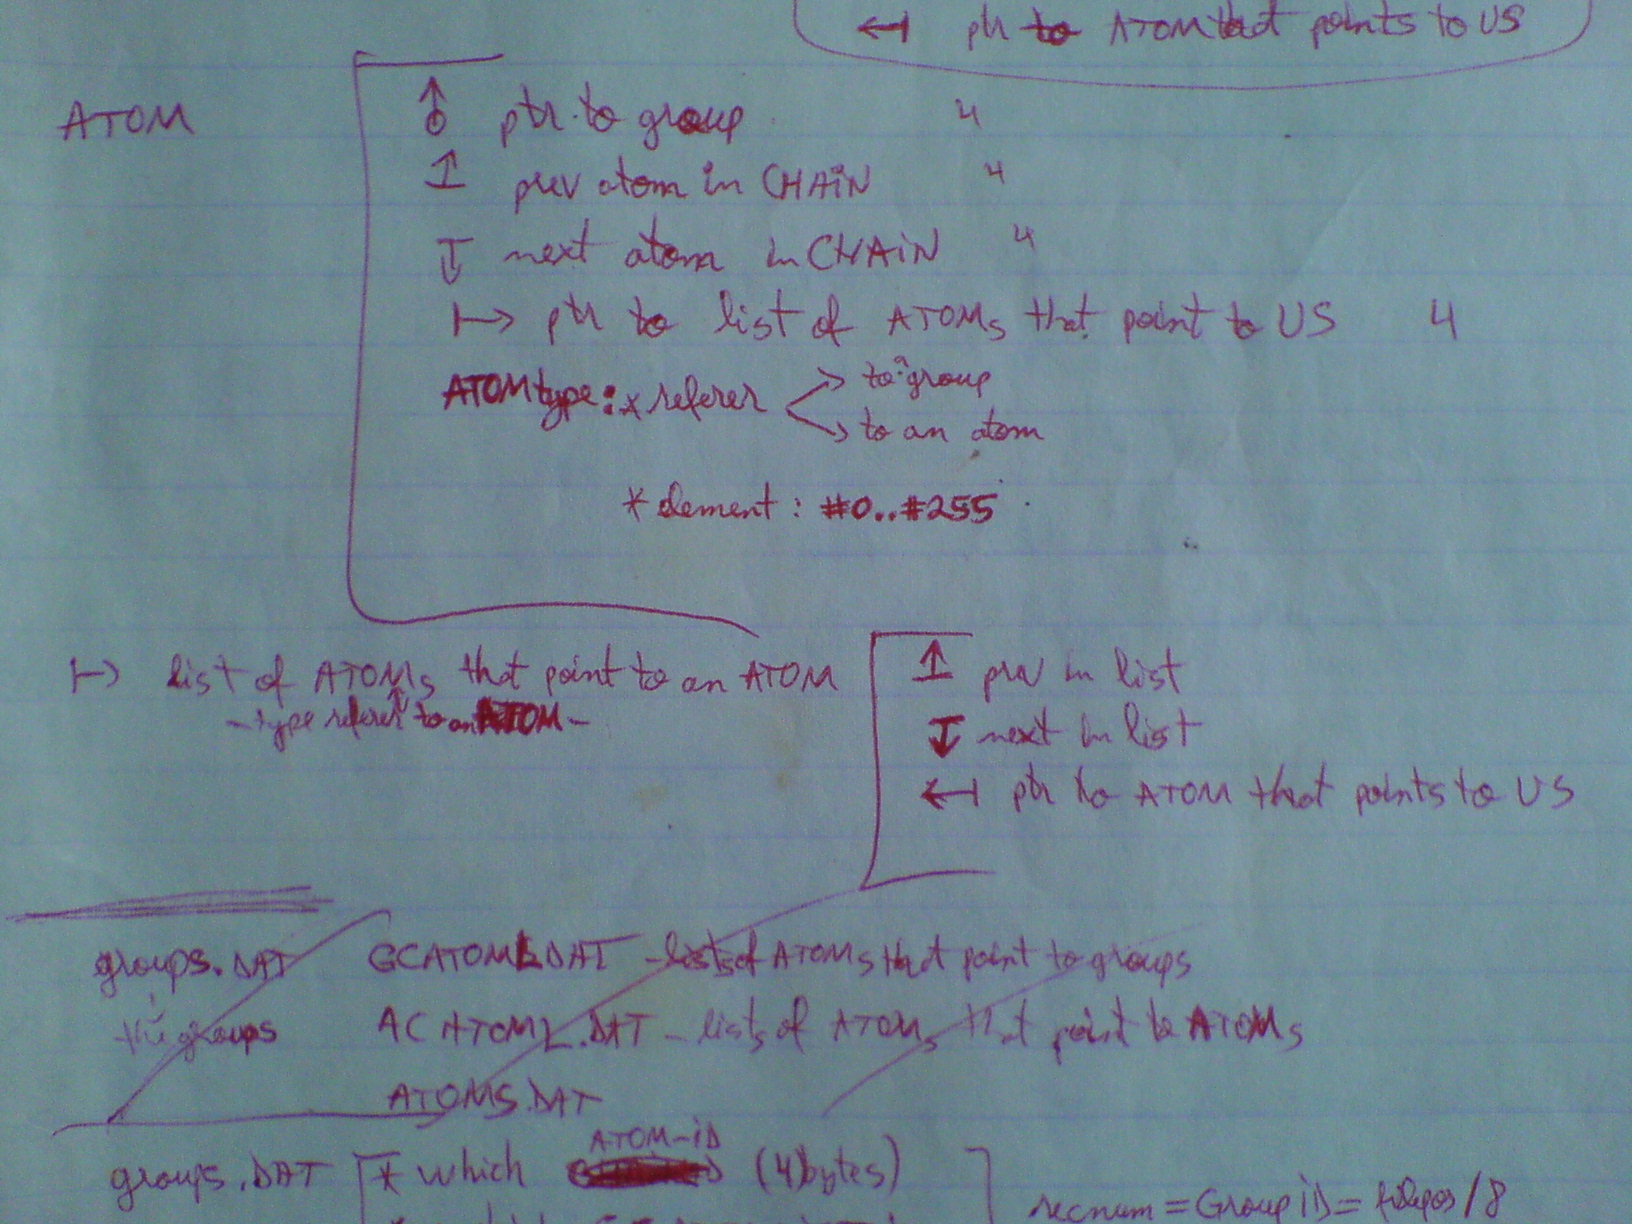 ↤ ptr to ATOM that points to US
ATOM
ptr to group 4
↥ prev atom in CHAiN 4
↧ next atom in CHAiN 4
↦ ptr to list of ATOMs that point to US 4
ATOMtype: * referer → to group
→ to an atom
* element : #0..#255
↦ list of ATOMs that point to an ATOM
- type referer to an ATOM -
↥ prev in list
↧ next in list
↤ ptr to ATOM that points to US
groups.DAT GCATOML.DAT - lists of ATOMs that point to groups
the groups ACATOML.DAT - lists of ATOMs that point to ATOMs
ATOMS.DAT
ATOM-iD
groups.DAT * which (4bytes)
recnum = GroupiD = filepos/8